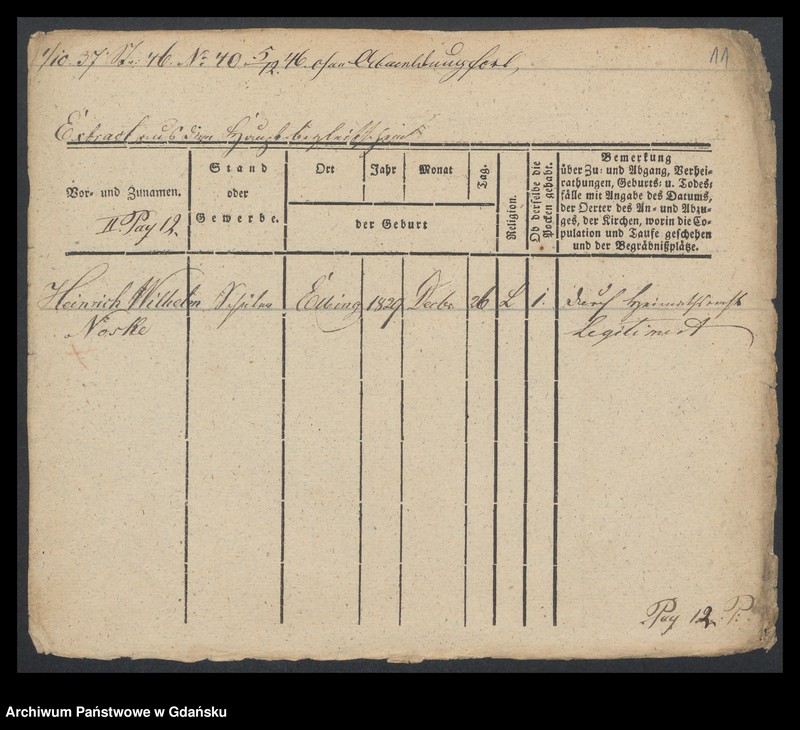 1/10. 37. St. 46. No 40 5/12 46. ohne Abmeldung fort,
11
Extract aus dem
Vor- und Zunamen.
II. Pag 12.
Stand
oder
Gewerbe.
Ort
Jahr
Monat
Tag.
der Geburt
Religion.
Ob derselbe die
Pocken gehabt.
Bemerkung
über Zu- und Abgang, Verhei-
rathungen, Geburts- u. Todes-
fälle mit Angabe des Datums,
der Oerter des An- und Abzu-
ges, der Kirchen, worin die Co-
pulation und Taufe geschehen
und der Begräbnißplätze.
Heinrich Wilhelm Schüler Elbing 1829 Decbr. 26 L 1. durch
Noske legitimirt
Pag 12. P.
Archiwum Państwowe w Gdańsku